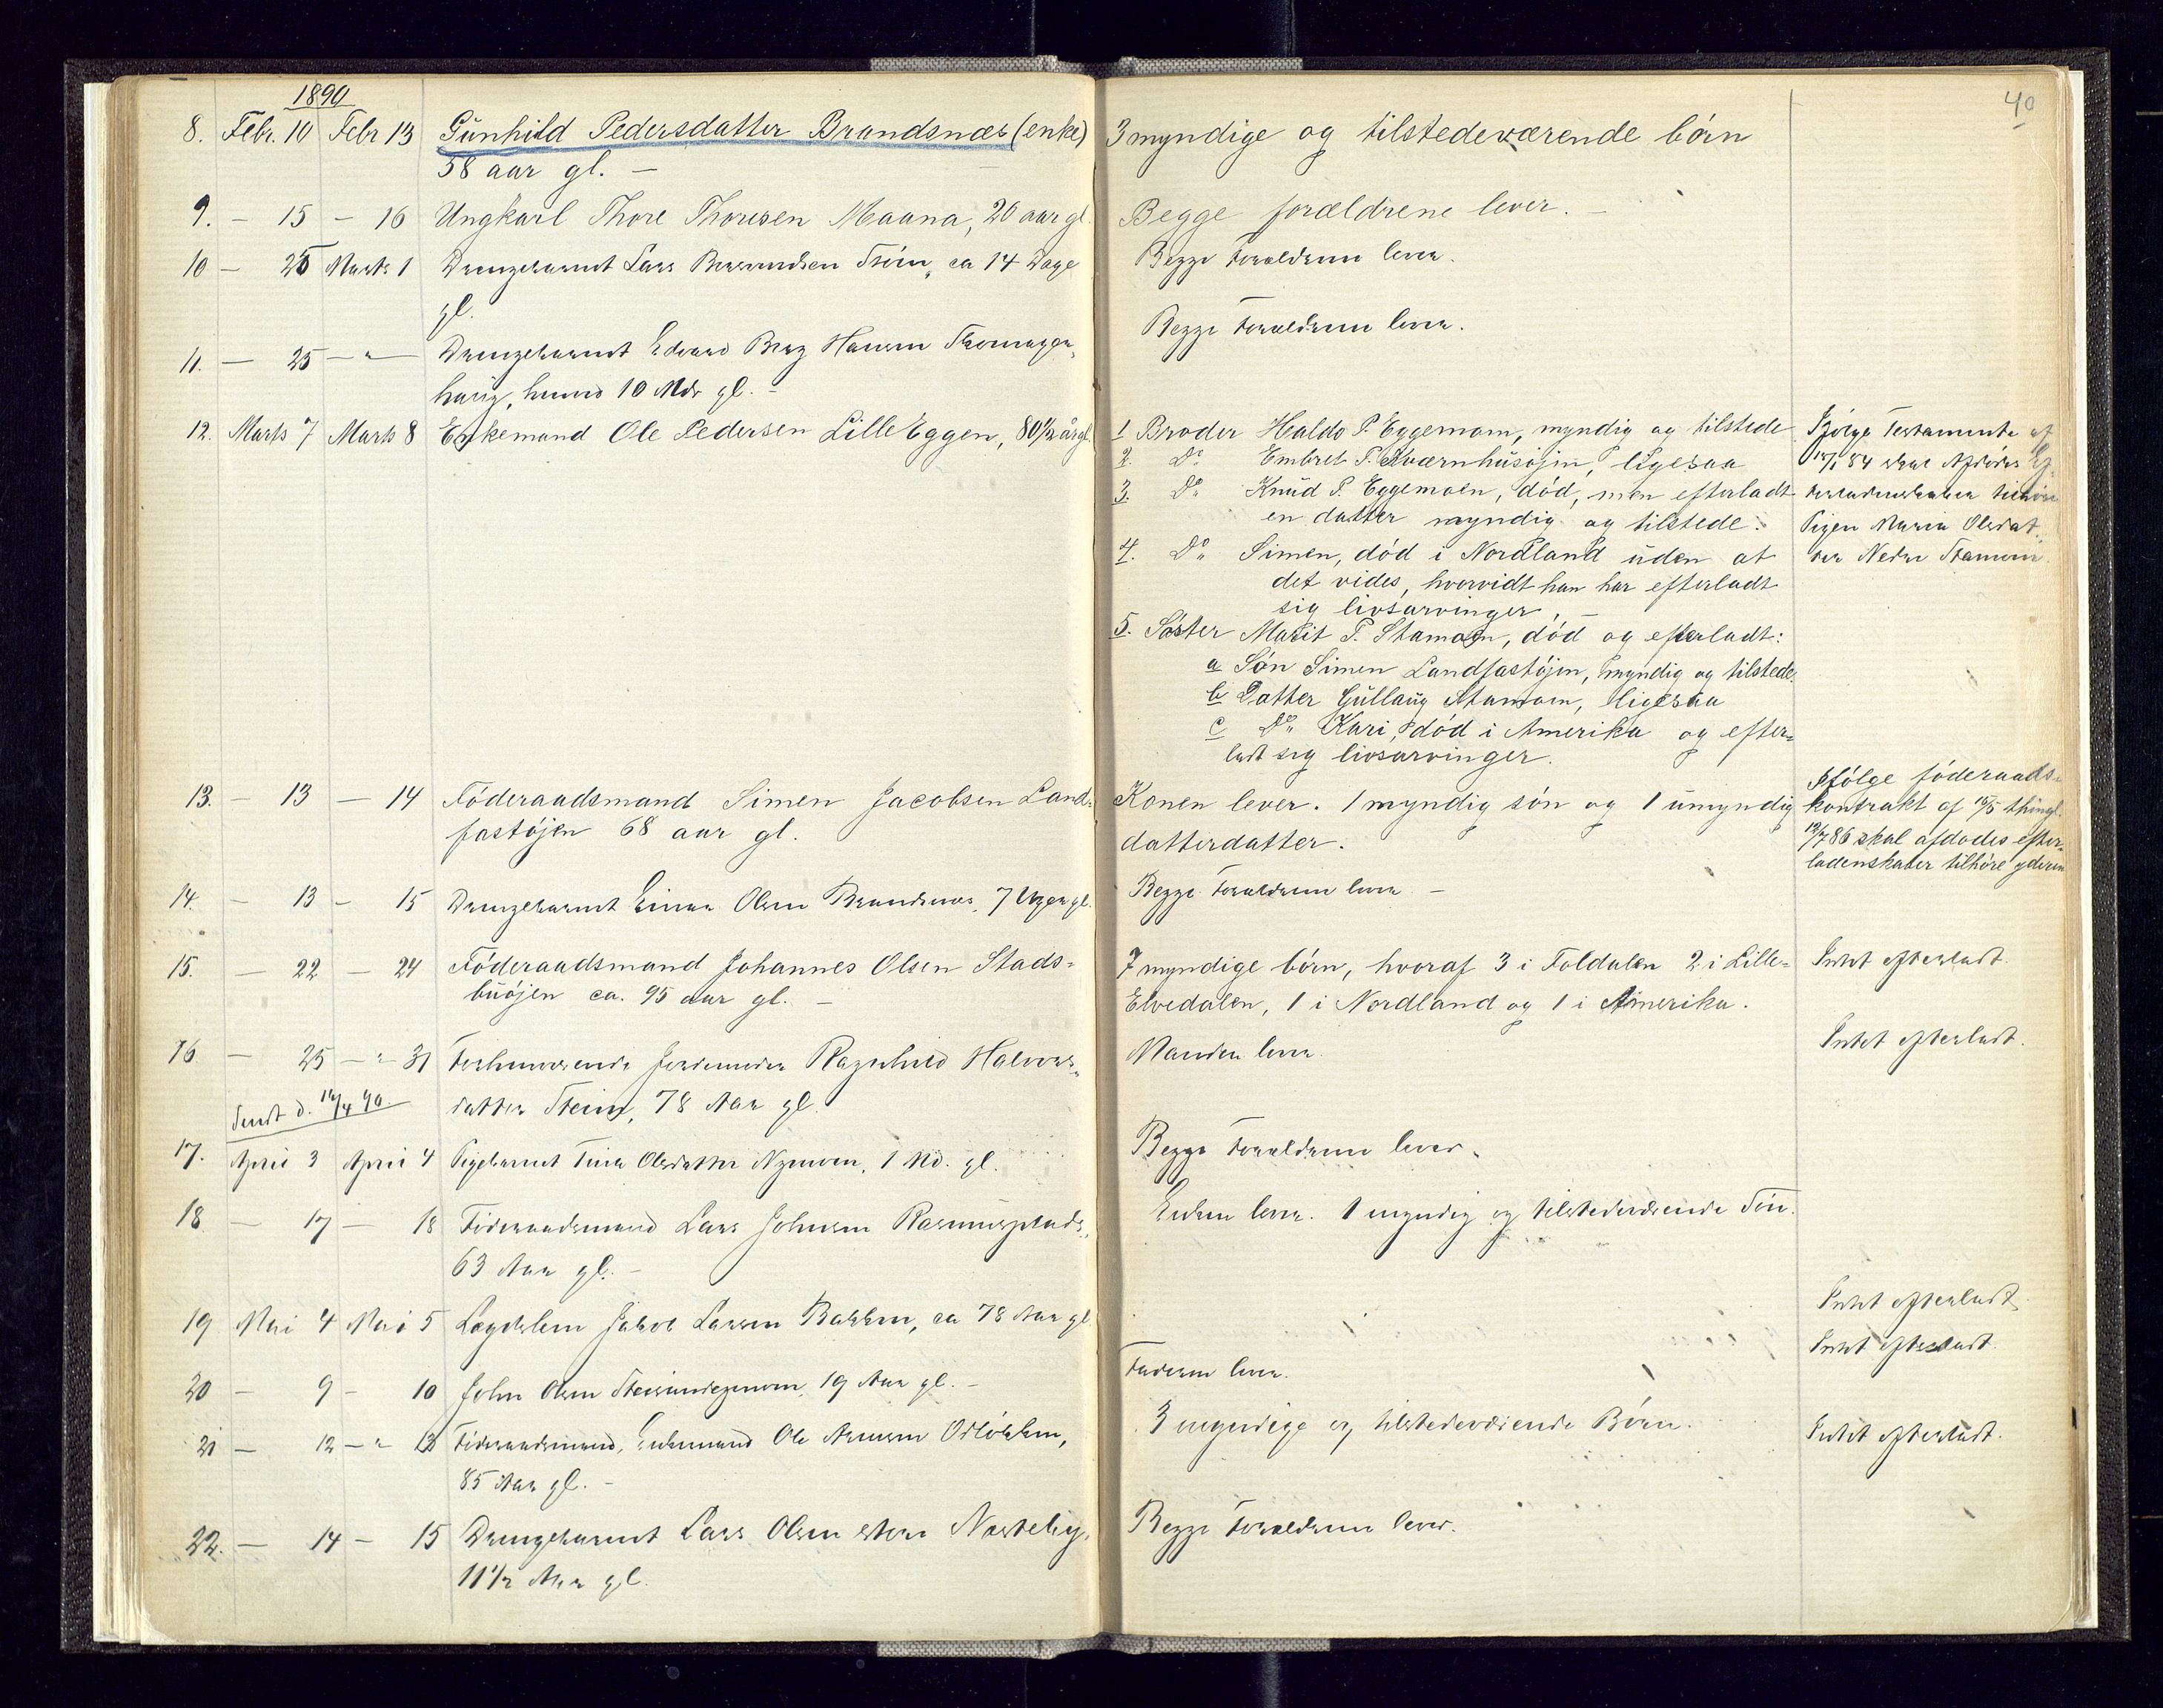 40
1890
8. Febr. 10 Febr 13 Gunhild Pedersdatter Brandsnæs (enke) 3 myndige og tilstedeværende børn
58 aar gl. —
9. — 15 — 16 Ungkarl Thore Thoresen Maana, 20 aar gl. Begge forældrene lever. —
10 — 25 Marts 1 Drengebarnet Lars Berendsen Steim, ca 14 Dage Begge Forældrene lever.
gl.
11. — 25 — " — Drengebarnet Edvard Berg Hansen Begge Forældrene lever.
10 Mdr gl. —
12. Marts 7 Marts 8 Enkemand Ole Pedersen Lille Eggen, 80 1/2 år gl. 1 Broder Haldo P. Eggemoen, myndig og tilstede Ifølge Testamente af
2. Do Embret P. Kværnhusøjen, ligesaa 84 skal Afdødes Ef-
3. Do Knud P. Eggemoen, død, men efterladt terladenskaber tilhøre
en datter myndig og tilstede. Pigen Maria Olsdat-
4. Do Simen, død i Nordland uden at ter Nedre Stamoen.
det vides, hvorvidt han har efterladt
sig livsarvinger. —
5. Søster Marit P. Stamoen, død og efterladt:
a Søn Simen Landfastøjen, myndig og tilstede.
b Datter Gullaug Stamoen, ligesaa
c Do Kari, død i Amerika og efter-
ladt sig livsarvinger.
13. — 13 — 14 Føderaadsmand Simen Jacobsen Land- Konen lever. 1 myndig søn og 1 umyndig Ifølge føderaads-
fastøjen 68 aar gl. datterdatter. kontrakt af 10/5 thingl.
12/7 86 skal afdødes efter-
ladenskaber tilhøre yderen
14. — 13 — 15 Drengebarnet Einar Olsen Brandsnæs, 7 Uger gl. Begge Forældrene lever —
15. — 22 — 24 Føderaadsmand Johannes Olsen Stads- 7 myndige børn, hvoraf 3 i Foldalen 2 i Lille- Intet efterladt.
buøjen ca. 95 aar gl. — Elvedalen, 1 i Nordland og 1 i Amerika.
16 — 25 — " 31 Forhenværende Jordemoder Ragnhild Halvors- Manden lever. Intet efterladt.
datter Steim, 78 Aar gl.
Sendt d. 16/4 90
17. April 3 April 4 Pigebarnet Tina Olsdatter Nymoen, 1 Md. gl. Begge Forældrene lever.
18 — 17 — 18 Føderaadsmand Lars Johnsen Rasmusplads, Enken lever. 1 myndig og tilstedeværende Søn.
63 Aar gl. —
19 Mai 4 Mai 5 Lægdslem Jakob Larsen Bakken, ca 78 Aar gl. Intet efterladt.
20 — 9 — 10 John Olsen 19 Aar gl. — Faderen lever. Intet efterladt.
21 — 12 — " 13 Føderaadsmand, Enkemand Ole Arnesen Odløkken, 3 myndige og tilstedeværende Børn. Intet efterladt.
85 Aar gl. —
22. — 14 — 15 Drengebarnet Lars Olsen store Nesteby, Begge Forældrene lever.
11 1/2 Aar gl.